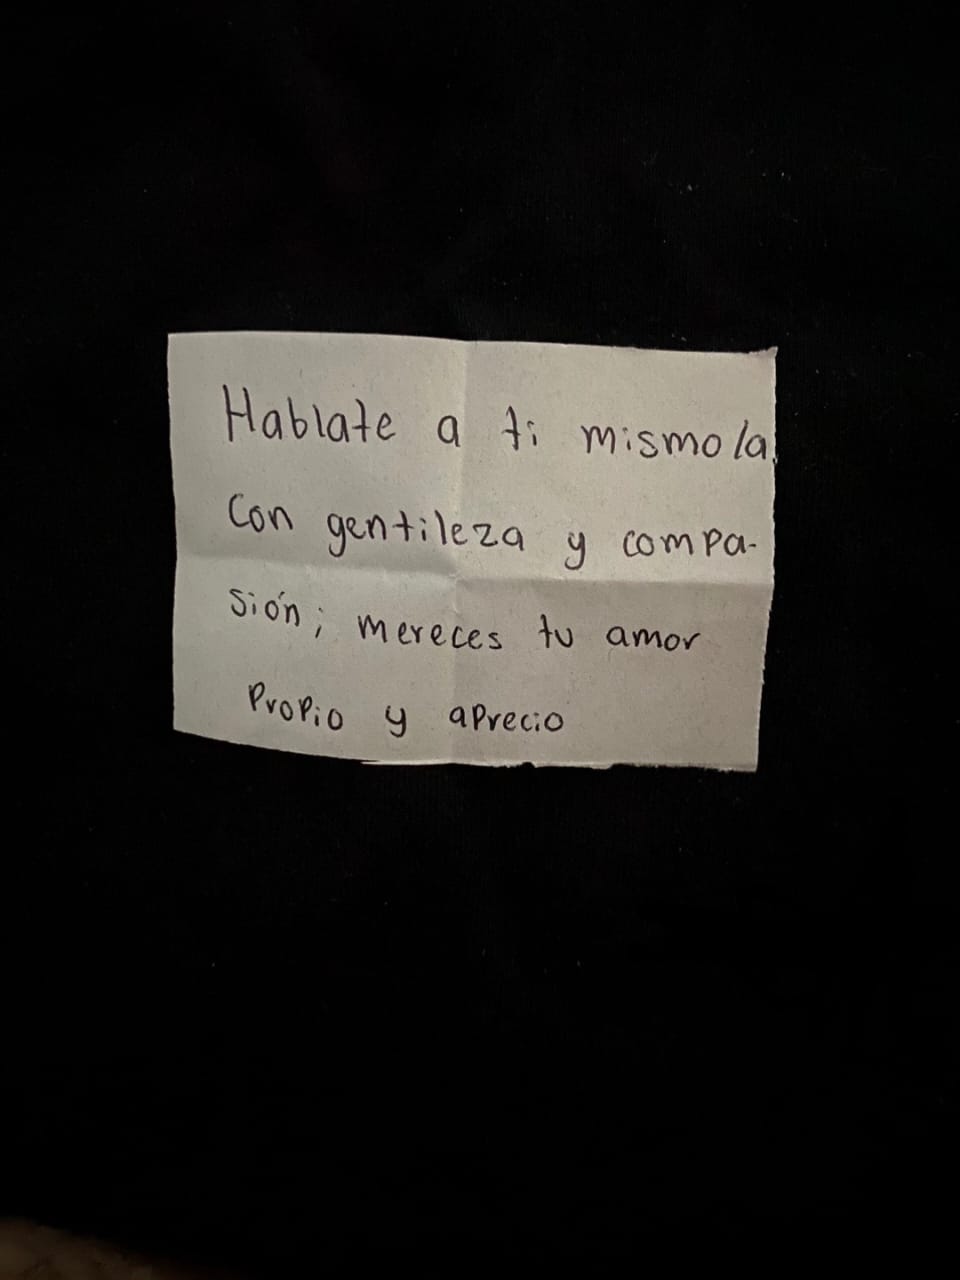 Hablate a ti mismo/a
con gentileza y compa-
sión; mereces tu amor
propio y aprecio